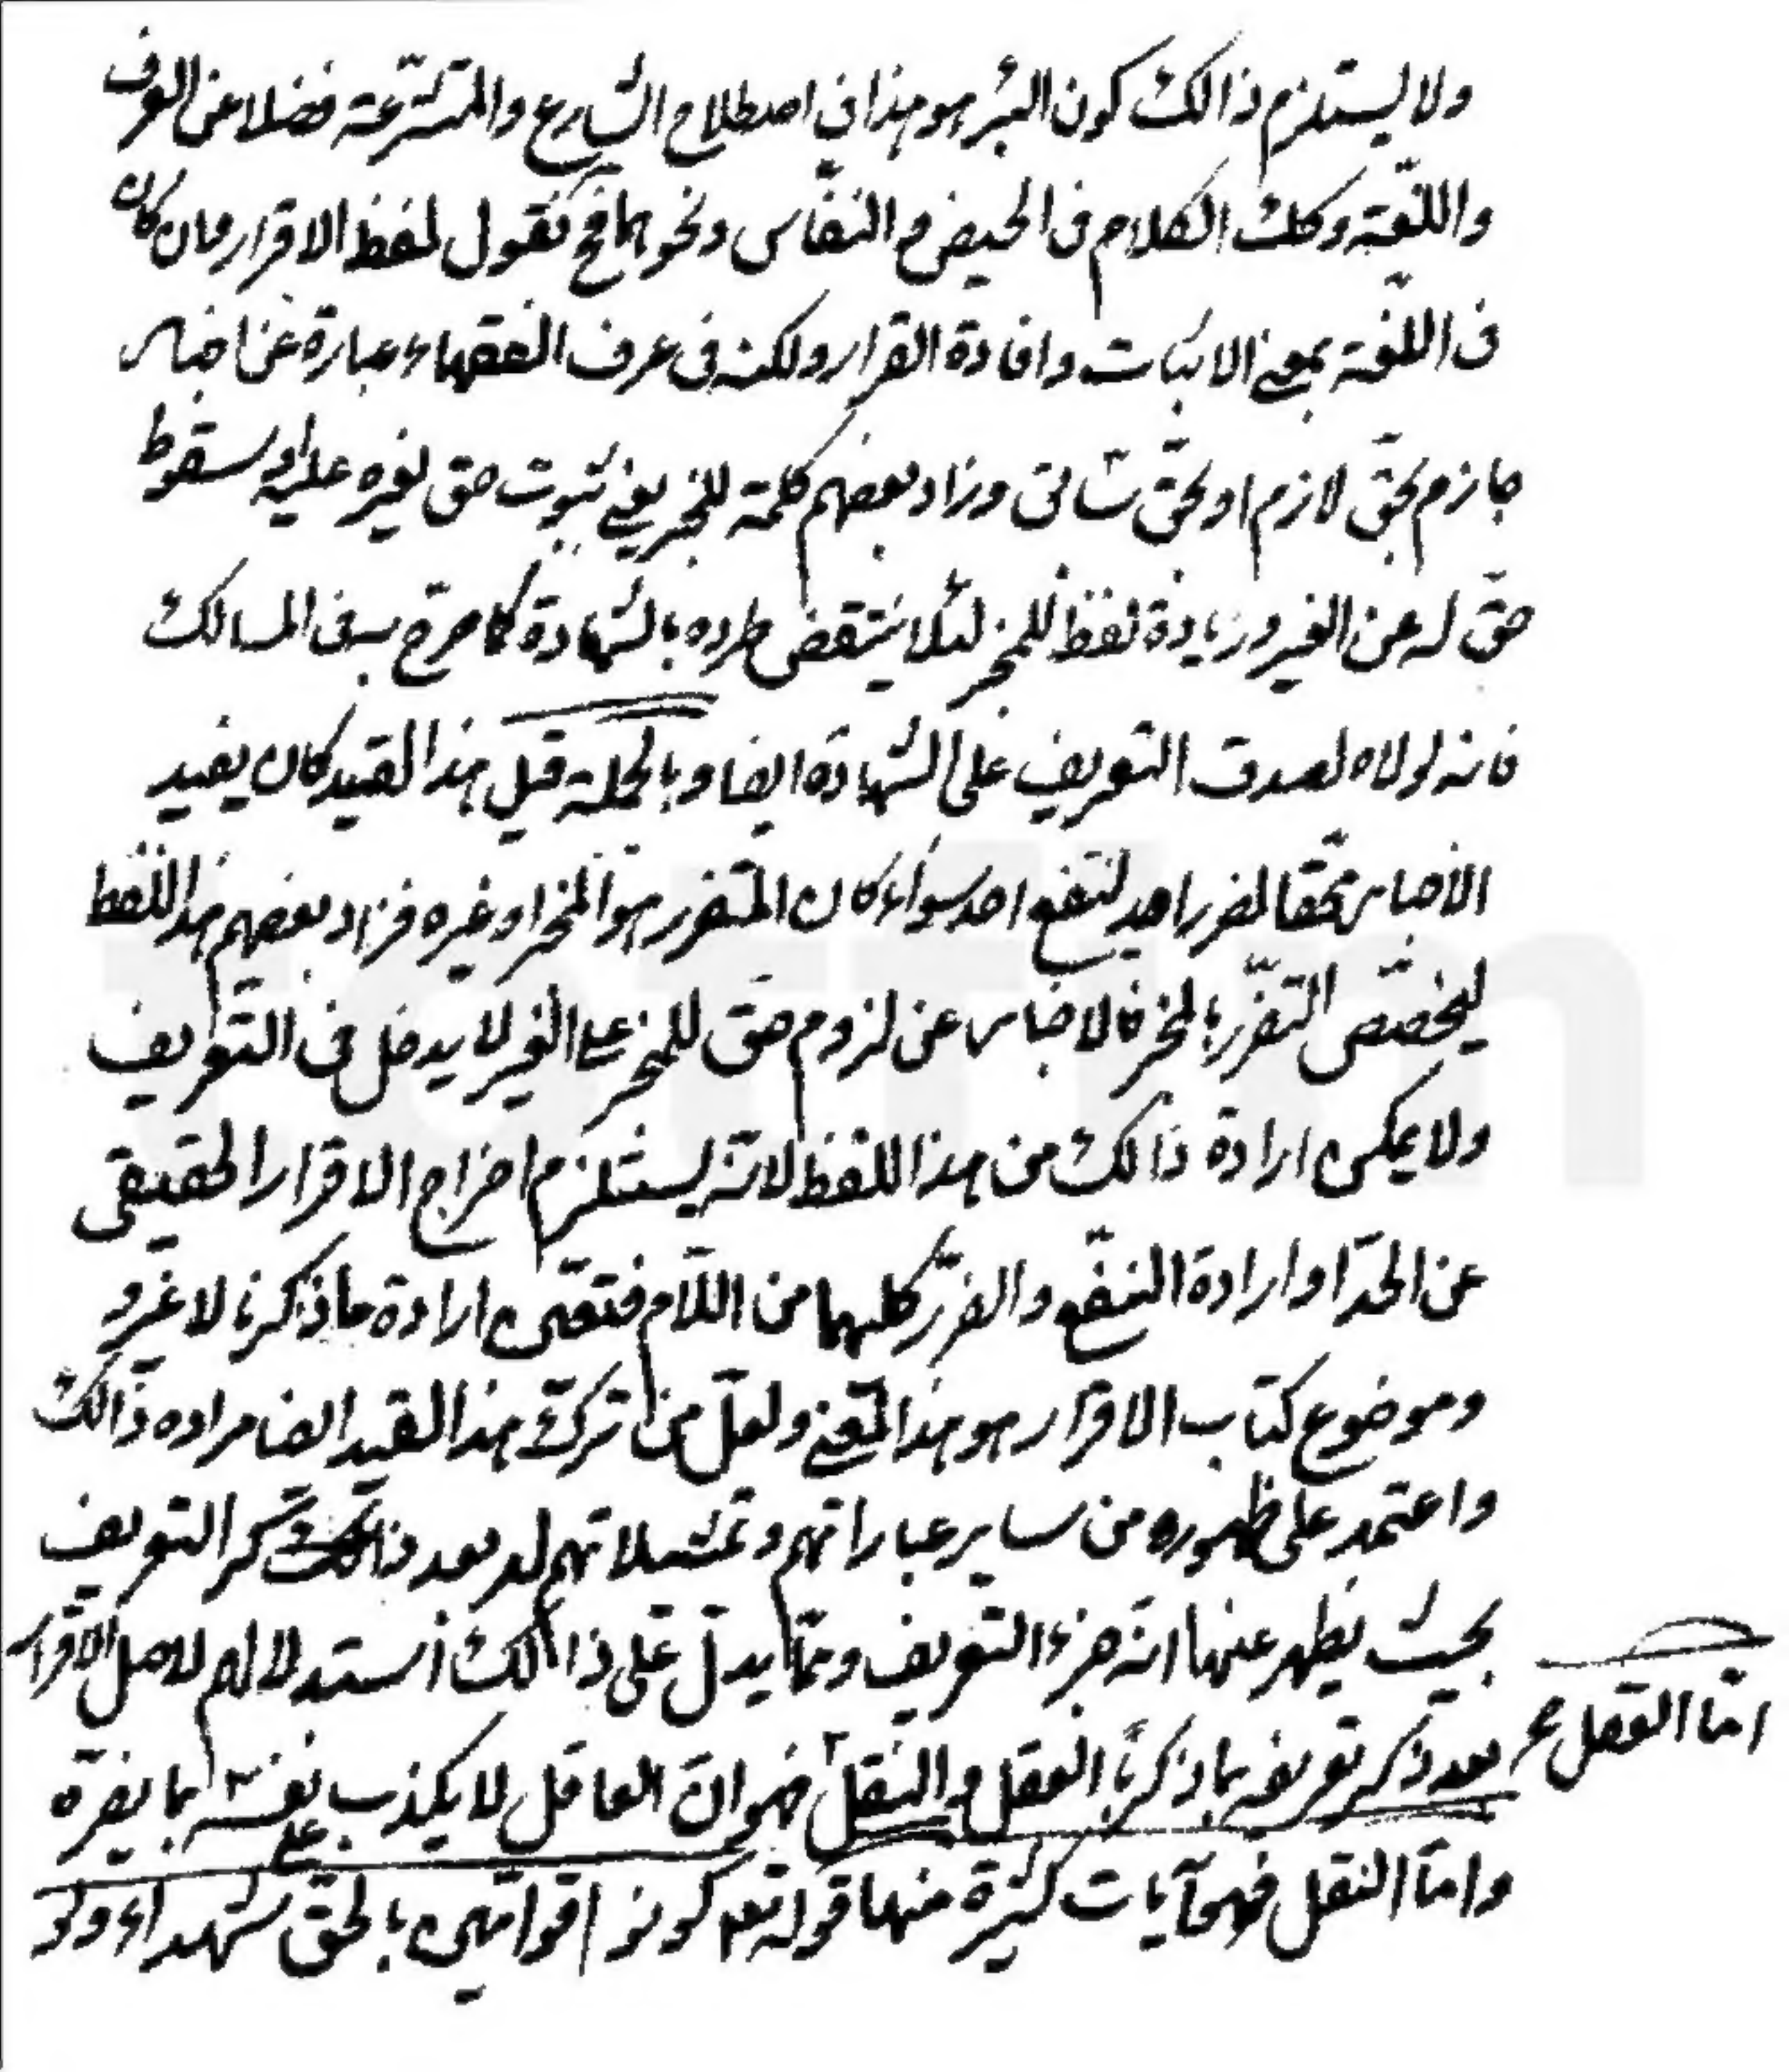 ولا يستلزم ذالك كون البئر هو هذا في اصطلاح الشارع والمتشرعة فضلا عن العرف
واللّغة وكك الكلام في الحيض والنفاس ونحوهما فح نقول لفظ الاقرار وان كان
في اللغة بمعنى الاثبات وافادة القرار ولكنه في عرف الفقهاء عبارة عن اخبار
جازم بحقّ لازم او بحقّ وزاد بعضهم كلمة للمخبر يعني ثبوت حق لغيره عليه او سقوط
حقّ له عن الغير وزيادة لفظ للمخبر لئلا ينتقض طرده بالشهادة كما صرح به في المسالك
فانه لولاه لصدق التعريف على الشهادة ايضا وبالجملة قبل هذا القيد كان يفيد
الاخبار محقّقا لضرر احد لنفع احد سواء كان المتضرر هو المخبر او غيره فزاد بعضهم هذا اللفظ
ليخصّص التضرّر بالمخبر فالاخبار عن لزوم حقّ للمخبر على الغير لا يدخل في التعريف
ولا يمكن ارادة ذالك من هذا اللفظ لانّه يستلزم اخراج الاقرار الحقيقي
عن الحدّ او ارادة النفع والضرّر كليهما من اللّام فتعيّن ارادة ما ذكرنا لا غير و
وموضوع كتاب الاقرار هو هذا المعنى ولعلّ من ترك هذا القيد ايضا مراده ذالك
واعتمد على ظهوره من ساير عباراتهم وتمثيلاتهم له بعد ذكر التعريف
بحيث يظهر عنها انّه جزء التعريف وممّا يدلّ على ذالك استدلالهم لاصل الاقرار
بعد ذكر تعريفه بما ذكرنا العقل والنقل فهو انّ العاقل لا يكذب نفسه بما يضرّه
امّا العقل
على
وامّا النقل فهو آيات كثيرة منها قوله تعه كونوا قوّامين بالحقّ شهداء ولو